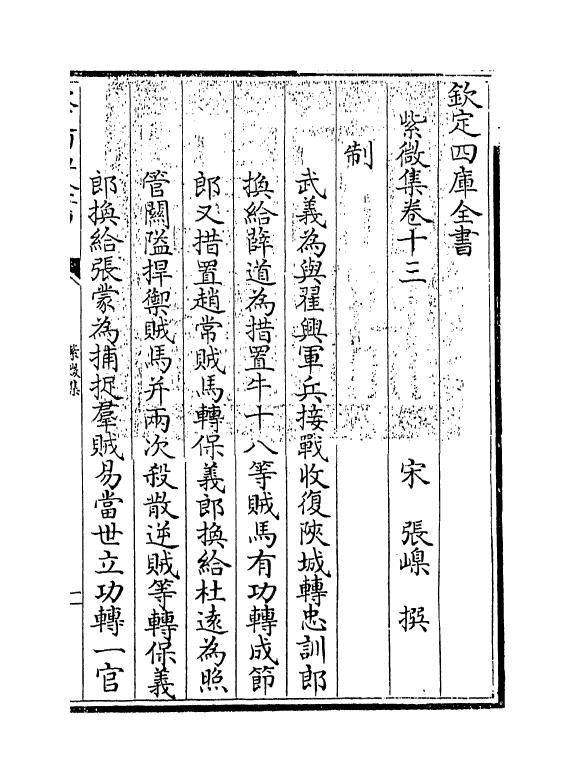 欽定四庫全書
紫微集卷十三
宋 張嵲 撰
制
武義為與翟興軍兵接戰收復陜城轉忠訓郎
換給薛道為措置牛十八等賊馬有功轉成節
郎又措置趙常賊馬轉保義郎換給杜遠為照
管關隘捍禦賊馬并兩次殺散逆賊等轉保義
郎換給張蒙為捕捉羣賊易當世立功轉一官
紫微集